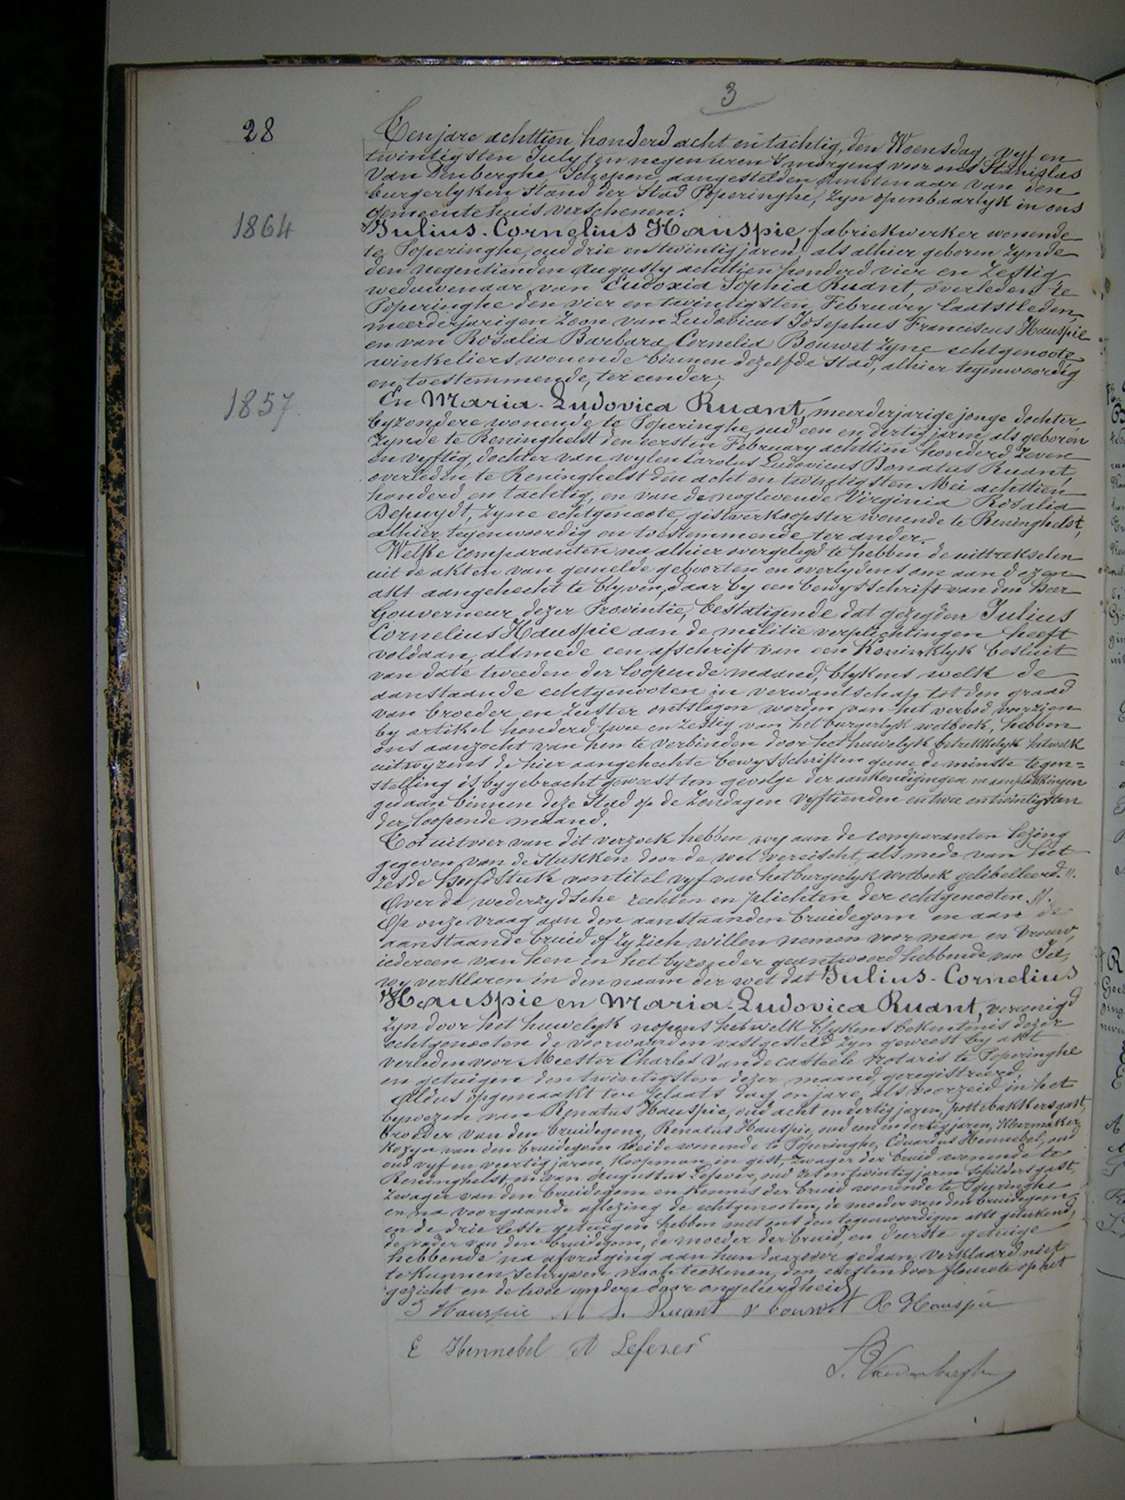 3
28
Ten jare achttien honderd acht en tachtig, den Woensdag vyf en
twintigsten July ten negen uren 's morgens voor ons Stanislas
Van Denberghe, Schepen, aangestelden ambtenaar van den
burgerlyken Stand der Stad Poperinghe, zyn openbaarlyk in ons
gemeentehuis verschenen:
1864
Julius-Cornelius Hauspie fabriekwerker wonende
te Poperinghe, oud drie en twintig jaren, als alhier geboren zynde
den negentienden Augusty achttien honderd vier en zestig
weduwenaar van Eudoxia Sophia Ruant, overleden te
Poperinghe den vier en twintigsten February laatstleden,
meerderjarigen Zoon van Ludovicus Josephus Franciscus Hauspie
en van Rosalia Barbara Cornelia Bouwet zyne echtgenoote
winkeliers wonende binnen dezelfde stad, alhier tegenwoordig
en toestemmende, ter eender;
1857
En Maria-Ludovica Ruant, meerderjarige jonge dochter
byzondere wonende te Poperinghe, oud een en dertig jaren, als geboren
zynde te Reninghelst den eersten February achttien honderd zeven
en vyftig, dochter van wylen Carolus Ludovicus Donatus Ruant,
overleden te Reninghelst den acht en twintigsten Mei achttien
honderd en tachtig, en van de noglevende Virginia Rosalia
Depuydt, zyne echtgenoote, gistverkoopster wonende te Reninghelst,
alhier tegenwoordig en toestemmende ter ander.
Welke comparanten na alhier overgelegd te hebben de uittrekselen
uit de akten van gemelde geboorten en overlydens om aan dezen
akt aangehecht te blyven, daar by een bewysschrift van den Heer
Gouverneur dezer Provintie, bestatigende dat gezegden Julius
Cornelius Hauspie aan de militie verplichtingen heeft
voldaan, alsmede een afschrift van een Koninklyk besluit
van date tweeden der loopende maand, blykens welk de
aanstaande echtgenooten in verwantschap tot den graad
van broeder en zuster ontslagen worden van het verbod voorzien
by artikel honderd twee en zestig van het burgerlyk wetboek, hebben
ons aanzocht van hen te verbinden door het huwelyk betrekkelyk hetwelk
uitwyzens de hier aangehechte bewysschriften geene de minste tegen=
stelling is bygebracht geweest ten gevolge der aankondigingen en aanplakkingen
gedaan binnen deze Stad op de Zondagen vyftienden en twee en twintigsten
der loopende maand.
Tot uitvoer van dit verzoek hebben wy aan de comparanten lezing
gegeven van de stukken door de wet vereischt, als mede van het
zesde hoofdstuk van titel vyf van het burgerlyk wetboek gelibelleerd "
Over de wederzydsche rechten en plichten der echtgenooten ".
Op onze vraag aan den aanstaanden bruidegom en aan de
aanstaande bruid of zy zich willen nemen voor man en vrouw,
iedereen van hen in het byzonder geantwoord hebbende van Ja,
wy verklaren in den naam der wet dat Julius-Cornelius
Hauspie en Maria-Ludovica Ruant, vereenigd
zyn door het huwelyk nopens hetwelk blykens bekentenis dezer
echtgenooten de voorwaarden vastgesteld zyn geweest by akt
verleden voor Meester Charles Vandecasteele notaris te Poperinghe
en getuigen den twintigsten dezer maand, geregistreerd.
Aldus opgemaakt ten plaats dag en jare als voorzeid in het
bywezen van Renatus Hauspie, oud acht en dertig jaren, pottebakkersgast,
broeder van den bruidegom, Renatus Hauspie, oud een en dertig jaren,
kozyn van den bruidegom beide wonende te Poperinghe, Eduardus Hennebel, oud
vyf en veertig jaren, koopman in gist, zwager der bruid wonende te
Reninghelst, en van Augustus Lefever, oud en twintig jaren schildersgast,
zwager van den bruidegom en kennis der bruid wonende te Poperinghe
en na voorgaande aflezing de echtgenooten, de moeder van den bruidegom
en de drie leste getuigen hebben met ons den tegenwoordigen akt geteekend,
de vader van den bruidegom, de moeder der bruid, en d'eerste getuige
hebbende na afvraging aan hun daarover gedaan, verklaard niet
te kunnen schryven noch teekenen, den eersten door op het
gezicht en de twee andere door ongeleerdheid.
J Hauspie M L Ruant r bouwet R Hauspie
E Hennebel A Lefever
S. Vandenberghe